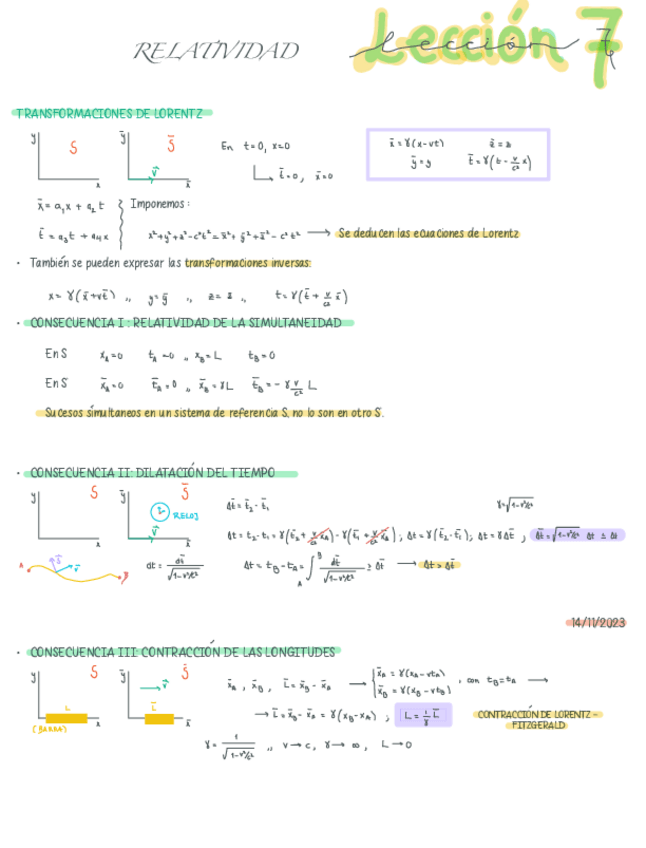 RELATIVIDAD
Lección 7
TRANSFORMACIONES DE LORENTZ
y S x
ȳ S̄ v⃗ x̄
En t=0, x=0
t̄=0, x̄=0
x̄ = γ(x-vt) z̄ = z
ȳ = y t̄ = γ(t - v/c² x)
x̄ = a₁x + a₂t
t̄ = a₃t + a₄x
Imponemos:
x²+y²+z²-c²t² = x̄²+ȳ²+z̄²-c²t̄² → Se deducen las ecuaciones de Lorentz
· También se pueden expresar las transformaciones inversas:
x = γ(x̄+vt̄) ,, y=ȳ ,, z=z̄ ,, t=γ(t̄ + v/c² x̄)
· CONSECUENCIA I: RELATIVIDAD DE LA SIMULTANEIDAD
En S x_A=0 t_A=0 ,, x_B=L t_B=0
En S̄ x̄_A=0 t̄_A=0 ,, x̄_B=γL t̄_B=-γ v/c² L
Sucesos simultaneos en un sistema de referencia S, no lo son en otro S̄.
· CONSECUENCIA II: DILATACIÓN DEL TIEMPO
y S x
ȳ S̄ RELOJ v⃗ x̄
Δt̄ = t̄₂-t̄₁
Δt = t₂-t₁ = γ(t̄₂ + v/c² x̄_A) - γ(t̄₁ + v/c² x̄_A) ; Δt = γ(t̄₂-t̄₁); Δt = γΔt̄ ; Δt̄ = √(1-v²/c²) Δt ≤ Δt
A B v⃗
dt = dt̄/√(1-v²/c²)
Δt = t_B - t_A = ∫_A^B dt̄/√(1-v²/c²) ≥ Δt̄ → Δt ≥ Δt̄
14/11/2023
· CONSECUENCIA III: CONTRACCIÓN DE LAS LONGITUDES
y S L x
(BARRA)
ȳ S̄ v⃗ L̄ x̄
x̄_A, x̄_B, L̄ = x̄_B - x̄_A → { x̄_A = γ(x_A - vt_A)
x̄_B = γ(x_B - vt_B) , con t_B = t_A →
→ L̄ = x̄_B - x̄_A = γ(x_B - x_A) ; L = 1/γ L̄
CONTRACCIÓN DE LORENTZ -
FITZGERALD
γ = 1/√(1-v²/c²) ,, v→c, γ→∞, L→0